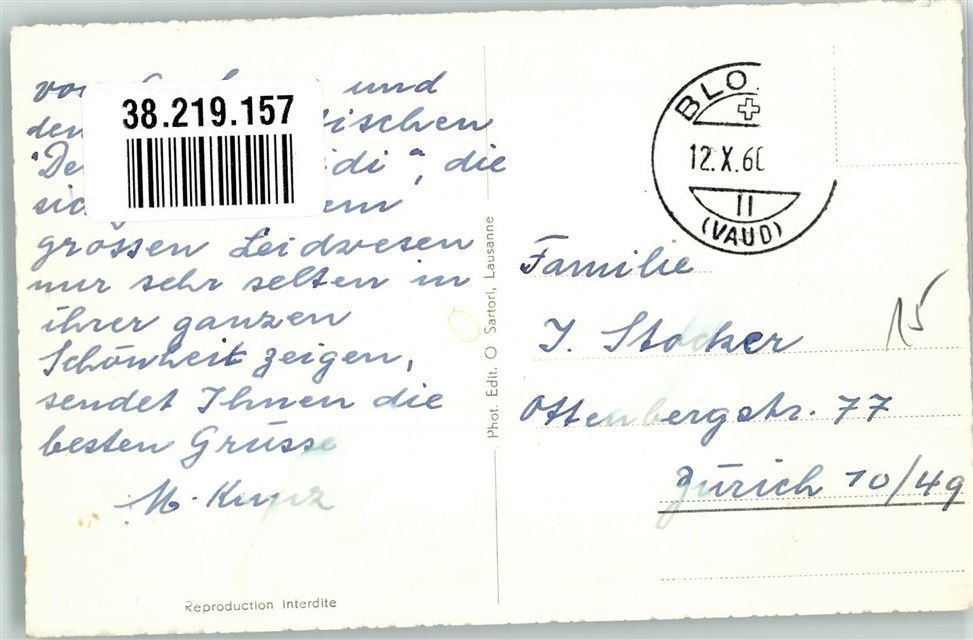 und
ischen
di", die
em
grössen Leidwesen
nur sehr selten in
ihrer ganzen
Schönheit zeigen,
sendet Ihnen die
besten Grüsse
M. Kunz
38.219.157
Reproduction Interdite
Phot. Edit. O Sartori, Lausanne
BLO
12.X.60
11
(VAUD)
15
Familie
J. Stocker
Ottenbergstr. 77
Zürich 10/49